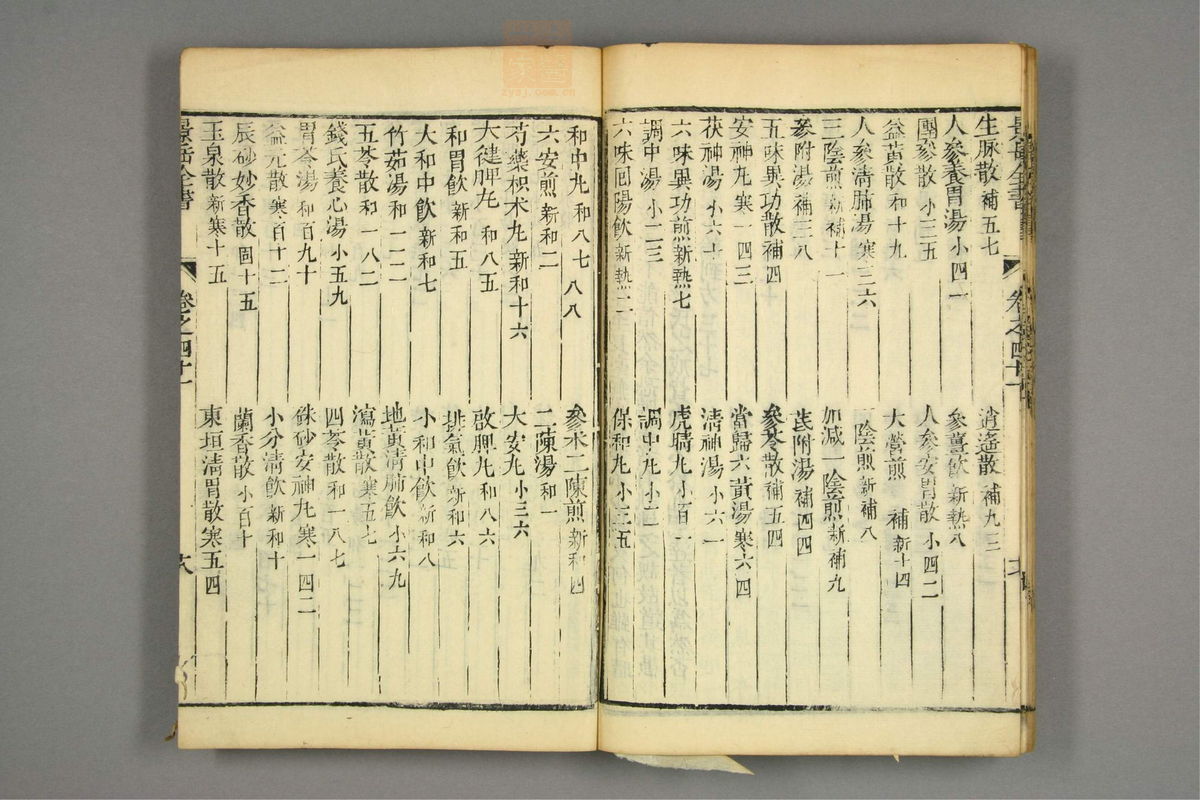 景岳全書
卷之四十一
生脉散補五七
逍遙散補九二
人參養胃湯小四一
參薑飲新熱八
團參散小三五
人參安胃散小四二
益黃散和十九
大營煎補新十四
人參清肺湯寒三六
一陰煎新補八
三陰煎新補十一
加減一陰煎新補九
參附湯補三八
芪附湯補四四
五味異功散補四
參苓散補五四
安神丸寒一四三
當歸六黃湯寒六四
茯神湯小六十
清神湯小六一
六味異功煎新熱七
虎睛丸小百一
調中湯小二三
調中丸小二二
六味回陽飲新熱二
保和丸小三五
和中丸和八七八八
參朮二陳煎新和四
六安煎新和二
二陳湯和一
芍藥枳朮丸新和十六
大安丸小三六
大健脾丸和八五
啟脾丸和八六
和胃飲新和五
排氣飲新和六
大和中飲新和七
小和中飲新和八
竹茹湯和一二二
地黃清肺飲小六九
五苓散和一八二
瀉黃散寒五七
錢氏養心湯小五九
四苓散和一八七
胃苓湯和百九十
硃砂安神丸寒一四二
益元散寒百十二
小分清飲新和十
辰砂妙香散固十五
蘭香散小百十
玉泉散新寒十五
東垣清胃散寒五四
景岳全書
卷之四十一
六